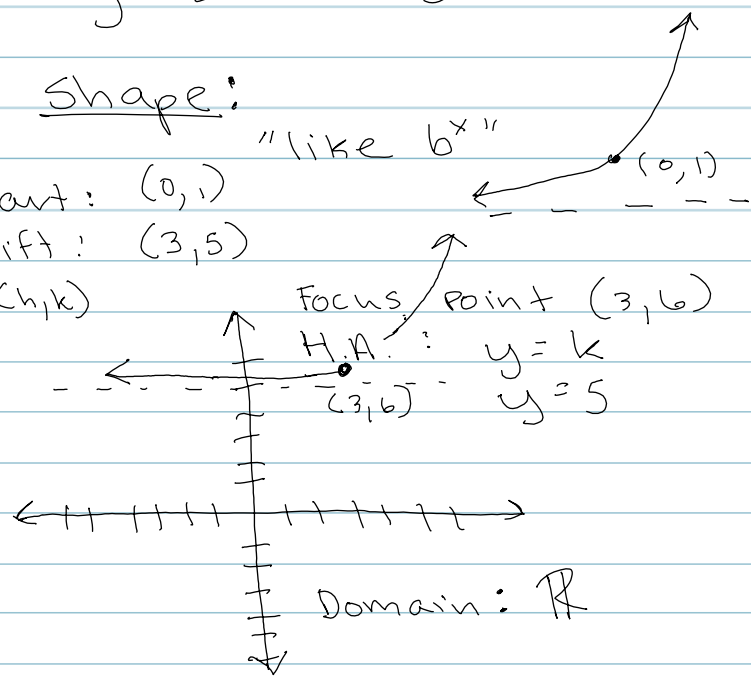 Shape:
"like bˣ"
(0,1)
art: (0,1)
ift: (3,5)
(h,k)
Focus point (3,6)
H.A.: y=k
(3,6) y=5
Domain: ℝ